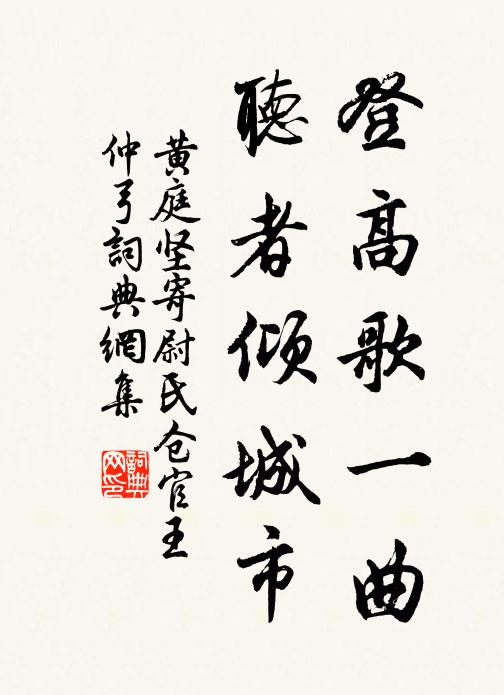 登高歌一曲
聽者傾城市
黃庭坚寄尉氏仓官王
仲弓詞典網集
詞典网印